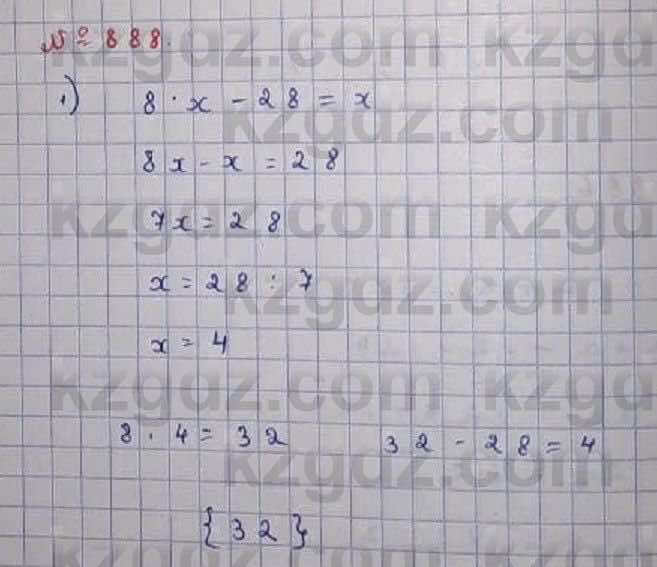 № 888.
1) 8 · x - 28 = x
8x - x = 28
7x = 28
x = 28 : 7
x = 4
8 · 4 = 32 32 - 28 = 4
{32}
kzgdz.com kzgdz.com
kzgdz.com
kzgdz.com kzgdz.com
kzgdz.com
kzgdz.com kzgdz.com
kzgdz.com